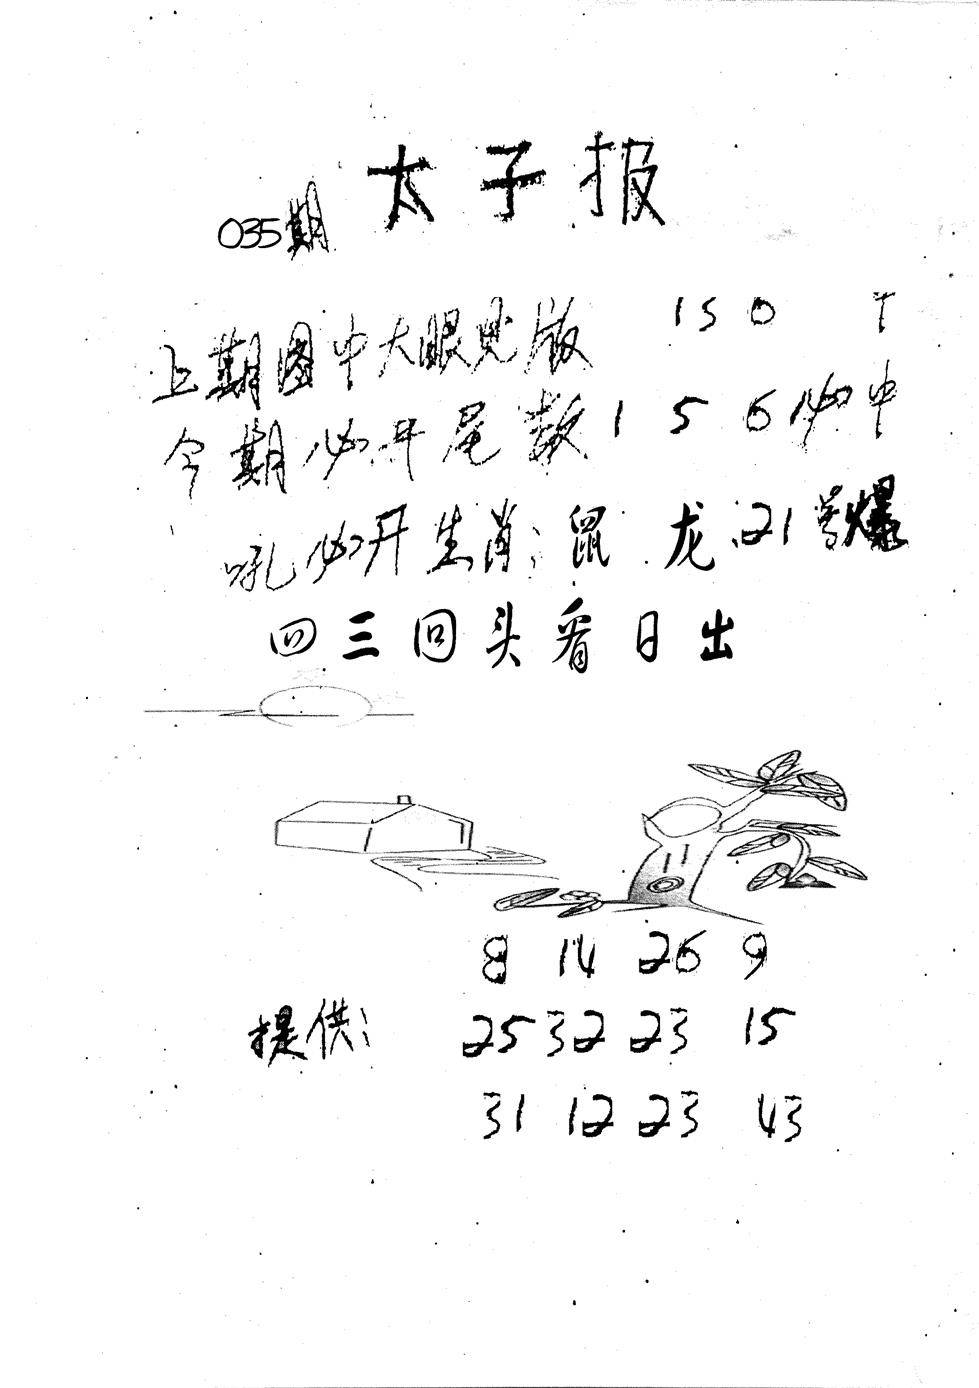 太子报
035期
上期图中大眼见版 150
今期必开尾数 1 5 6 必中
吼必开生肖: 鼠 龙.21号爆
四三回头看日出
8 14 26 9
提供: 25 32 23 15
31 12 23 43